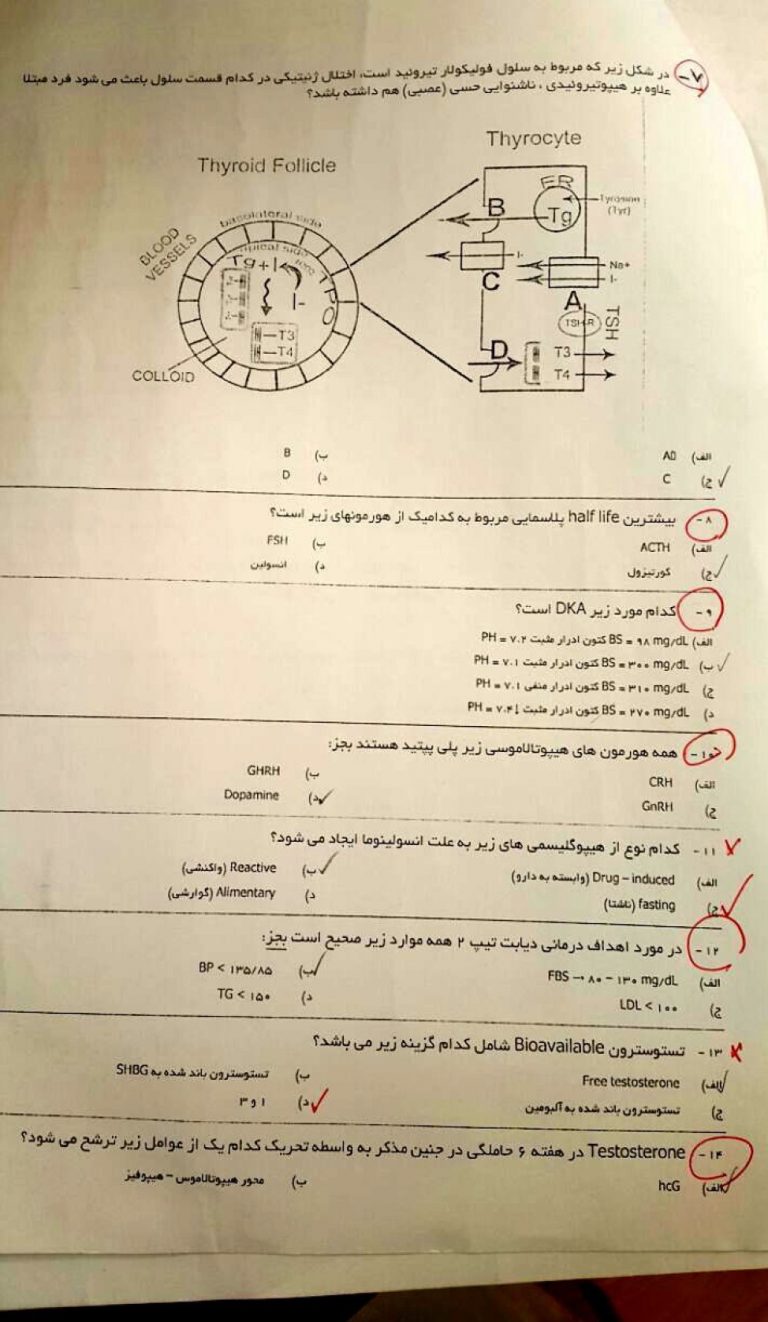 ۷- در شکل زیر که مربوط به سلول فولیکولار تیروئید است، اختلال ژنیتیکی در کدام قسمت سلول باعث می شود فرد مبتلا
علاوه بر هیپوتیروئیدی ، ناشنوایی حسی (عصبی) هم داشته باشد؟
Thyrocyte
Thyroid Follicle
ER
B
Tg
Tyrosine
(Tyr)
basolateral side
BLOOD
VESSELS
apical side
Tg + I
TPO
I-
I-
C
Na+
I-
A
TSH-R
TSH
T3
T4
D
T3
T4
COLLOID
الف) A
ب) B
ج) C
د) D
۸- بیشترین half life پلاسمایی مربوط به کدامیک از هورمونهای زیر است؟
الف) ACTH
ب) FSH
ج) کورتیزول
د) انسولین
۹- کدام مورد زیر DKA است؟
الف) BS = ۹۸ mg/dL کتون ادرار مثبت PH = ۷.۲
ب) BS = ۳۰۰ mg/dL کتون ادرار مثبت PH = ۷.۱
ج) BS = ۳۱۰ mg/dL کتون ادرار منفی PH = ۷.۱
د) BS = ۲۷۰ mg/dL کتون ادرار مثبت PH = ۷.۴
۱۰- همه هورمون های هیپوتالاموسی زیر پلی پپتید هستند بجز:
الف) CRH
ب) GHRH
ج) GnRH
د) Dopamine
۱۱- کدام نوع از هیپوگلیسمی های زیر به علت انسولینوما ایجاد می شود؟
الف) Drug – induced (وابسته به دارو)
ب) Reactive (واکنشی)
ج) fasting (ناشتا)
د) Alimentary (گوارشی)
۱۲- در مورد اهداف درمانی دیابت تیپ ۲ همه موارد زیر صحیح است بجز:
الف) FBS → ۸۰ – ۱۳۰ mg/dL
ب) BP < ۱۳۵/۸۵
ج) LDL < ۱۰۰
د) TG < ۱۵۰
۱۳- تستوسترون Bioavailable شامل کدام گزینه زیر می باشد؟
الف) Free testosterone
ب) تستوسترون باند شده به SHBG
ج) تستوسترون باند شده به آلبومین
د) ۱ و ۳
۱۴- Testosterone در هفته ۶ حاملگی در جنین مذکر به واسطه تحریک کدام یک از عوامل زیر ترشح می شود؟
الف) hcG
ب) محور هیپوتالاموس – هیپوفیز